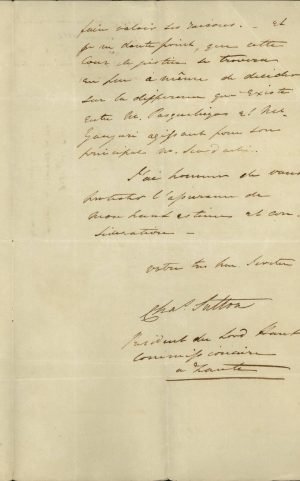 faire valoir ses raisons. — et
je ne doute point, que cette
Cour de justice se trouvera
en peu a même de decider
sur la difference qui existe
entre M. Pasqualigo et M.
agissant pour son
principal M.
J'ai l'honneur de vous
protester l'assurance de
mon haut estime et con
sideration —
votre tres hue Serviteur
Chas. Sutton
Resident du Lord Haut
Commissionaire
a Zante